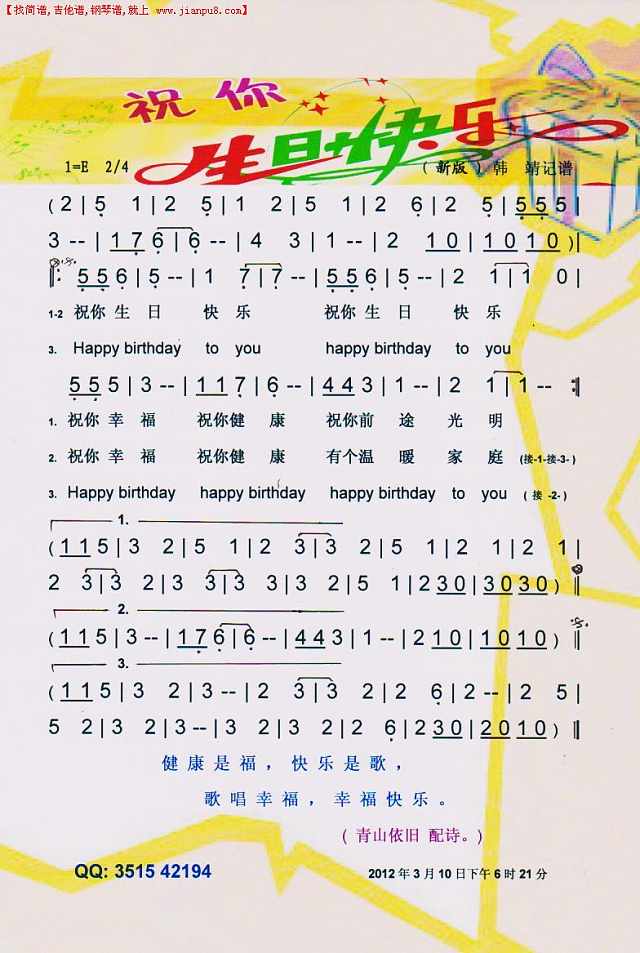 【找简谱,吉他谱,钢琴谱,就上 www.jianpu8.com】
祝你
生日快乐
1=E 2/4 （新版）韩 靖记谱
( 2 | 5 1 | 2 5 | 1 2 | 5 1 | 2 6 | 2 5 | 5 5 5 |
3 - - | 1 7 6 | 6 - - | 4 3 | 1 - - | 2 1 0 | 1 0 1 0 ) |
5 5 6 | 5 - - | 1 7 | 7 - - | 5 5 6 | 5 - - | 2 1 | 1 0 |
1-2 祝你 生 日 快 乐 祝你 生 日 快 乐
3. Happy birthday to you happy birthday to you
5 5 5 | 3 - - | 1 1 7 | 6 - - | 4 4 3 | 1 - | 2 1 | 1 - - :||
1. 祝你 幸 福 祝你健 康 祝你前 途 光 明
2. 祝你 幸 福 祝你健 康 有个温 暖 家 庭 (接-1-接-3-)
3. Happy birthday happy birthday happy birthday to you ( 接 -2-)
1.
( 1 1 5 | 3 2 | 5 1 | 2 3 | 3 2 | 5 1 | 2 1 | 2 1 |
2 3 | 3 2 | 3 3 | 3 3 | 3 2 | 5 1 | 2 3 0 | 3 0 3 0 ) ||
2.
( 1 1 5 | 3 - - | 1 7 6 | 6 - - | 4 4 3 | 1 - - | 2 1 0 | 1 0 1 0 ) ||
3.
( 1 1 5 | 3 2 | 3 2 | 3 - - | 2 3 | 3 2 | 2 6 | 2 - - | 2 5 |
5 2 | 3 2 | 3 - - | 3 2 | 3 2 | 2 6 | 2 3 0 | 2 0 1 0 ) ||
健康是福，快乐是歌，
歌唱幸福，幸福快乐。
( 青山依旧 配诗。)
QQ: 3515 42194 2012 年 3 月 10 日下午 6 时 21 分